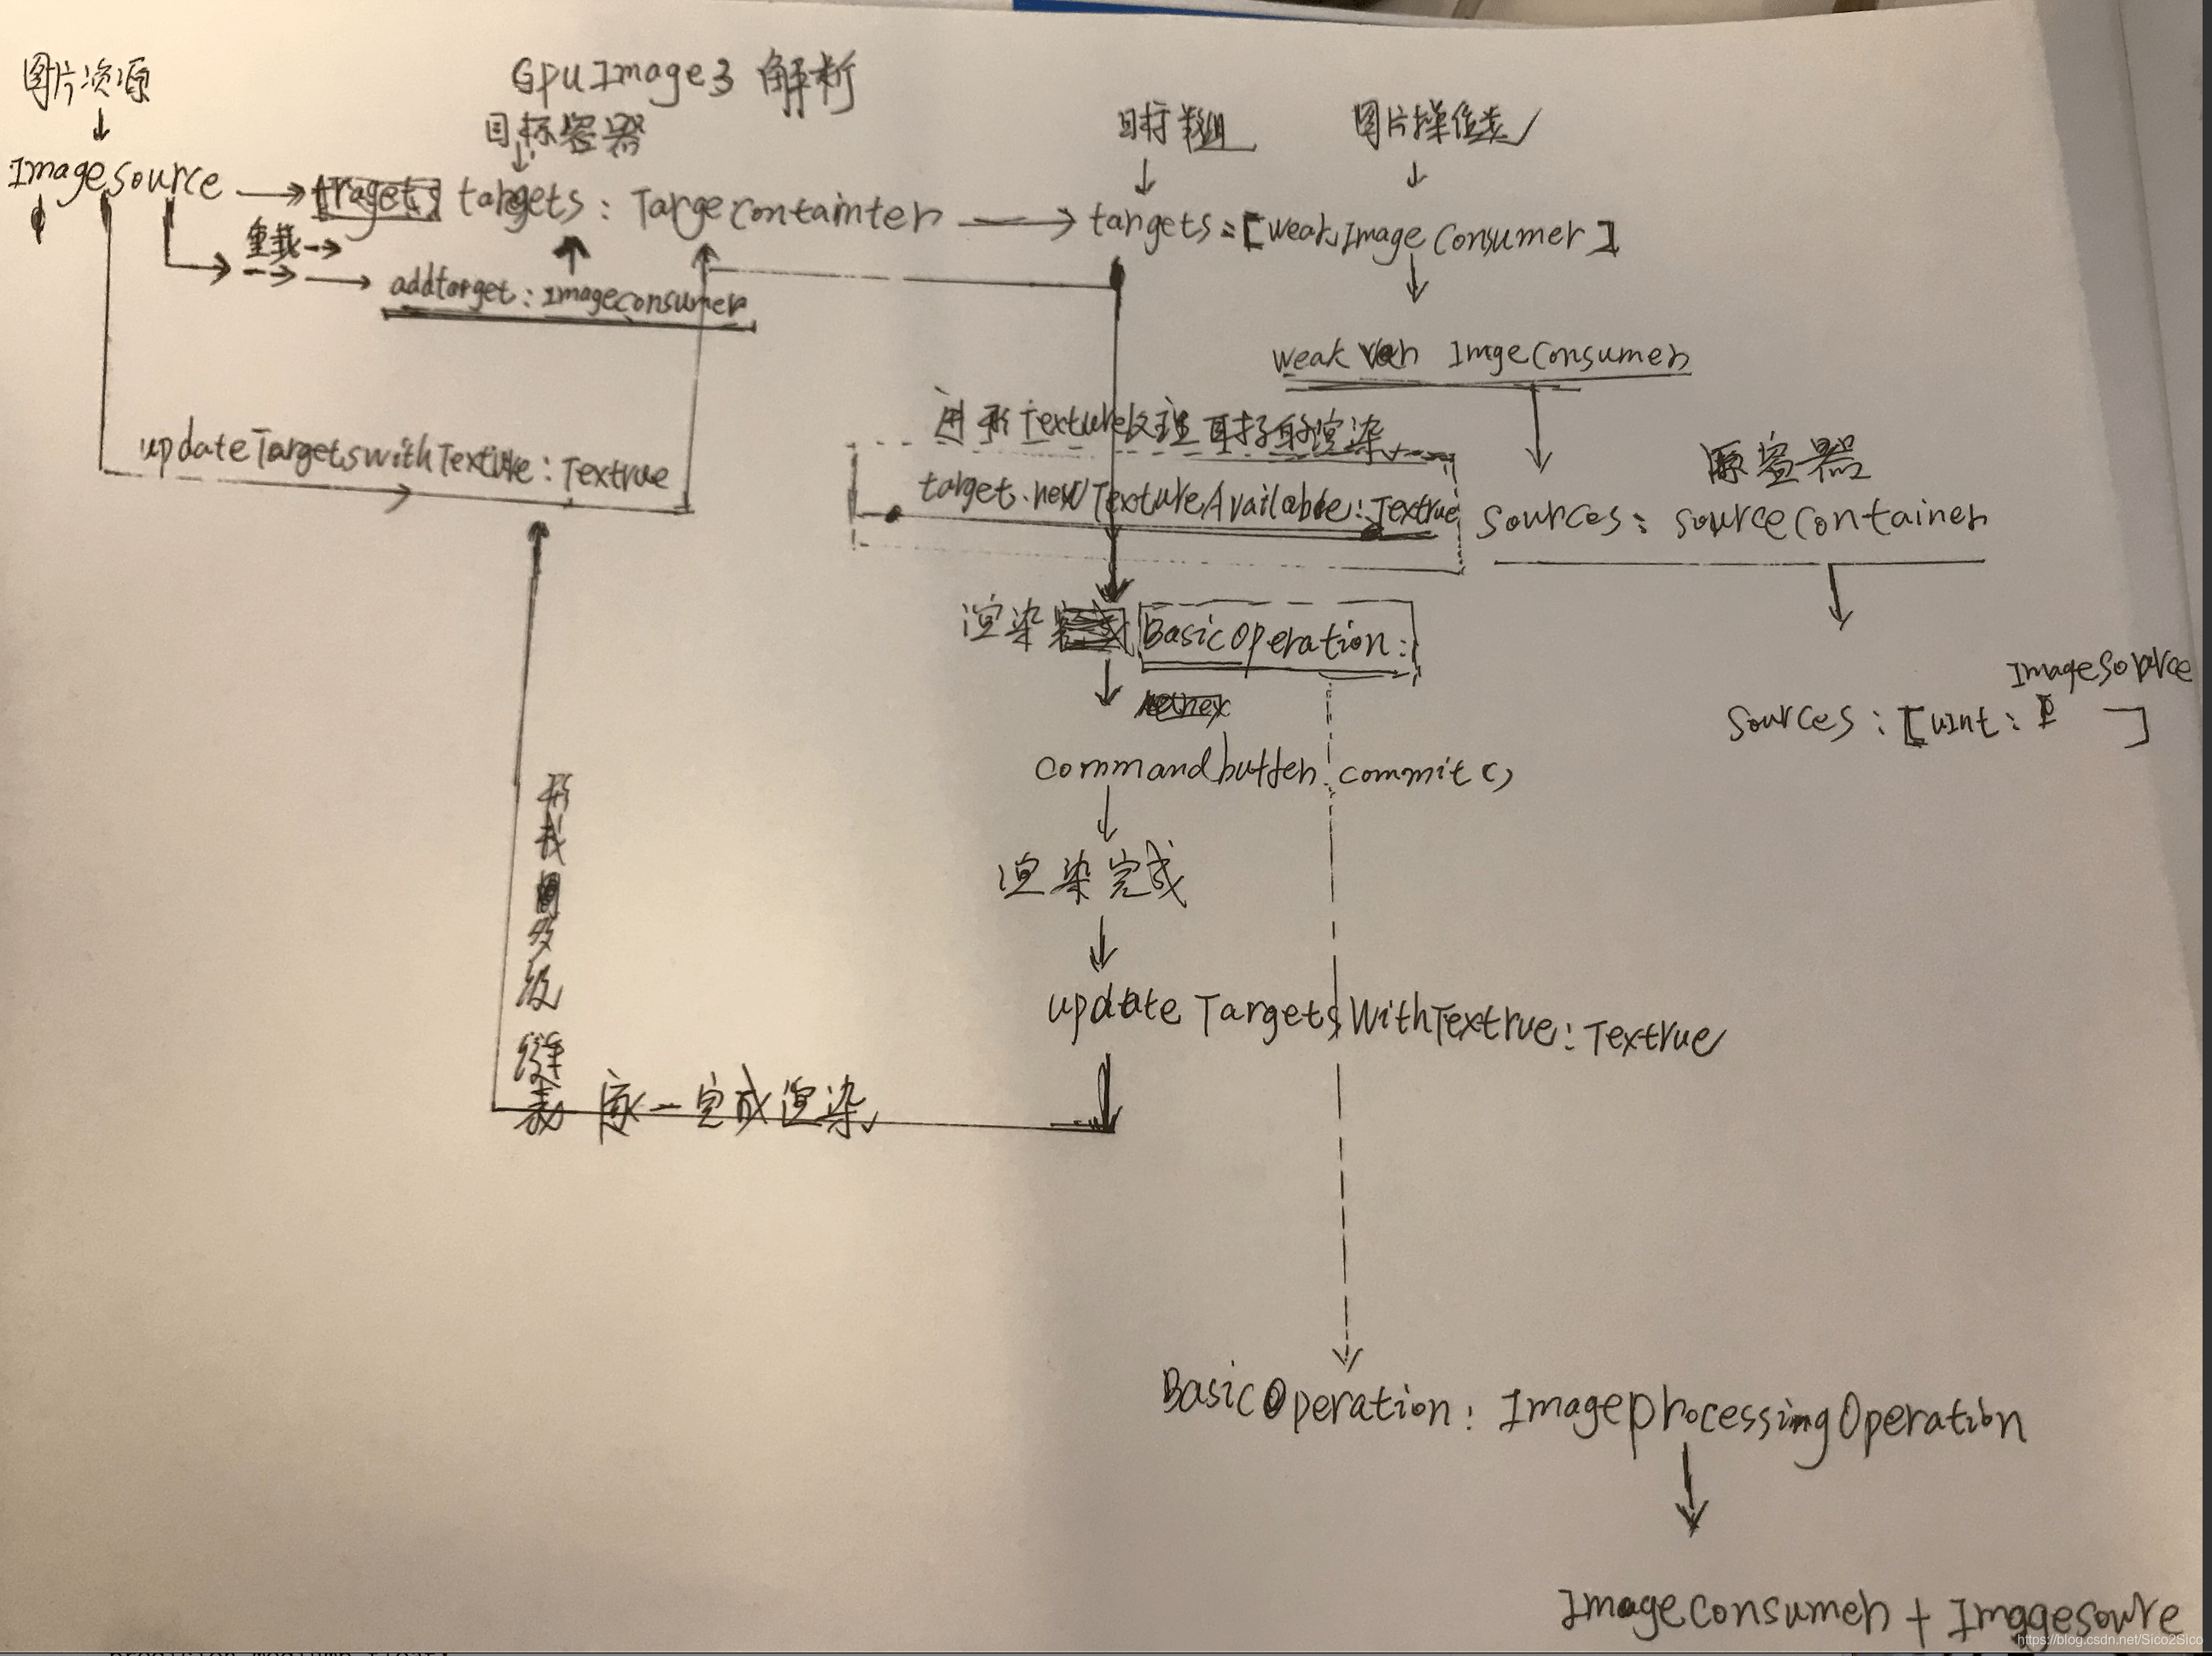 图片资源
GpuImage3 解析
目标容器
目标数组
图片操作类
ImageSource
targets : TargeContainter
targets = [weakImageConsumer]
重载
addtarget : imageconsumer
weak var ImgeConsumer
updateTargetswithTexture : Textrue
进行Texture纹理目标的渲染
target.newTextureAvailable : Textrue
原容器
Sources : sourceContainer
渲染
BasicOperation :
ImageSource
Sources : [UInt : ]
commandbuffer.commit()
渲染完成
updateTargetsWithTextrue : Textrue
多级链表
逐一完成渲染
BasicOperation : ImageprocessingOperation
ImageConsumer + Imagesoure
https://blog.csdn.net/Sico2Sico